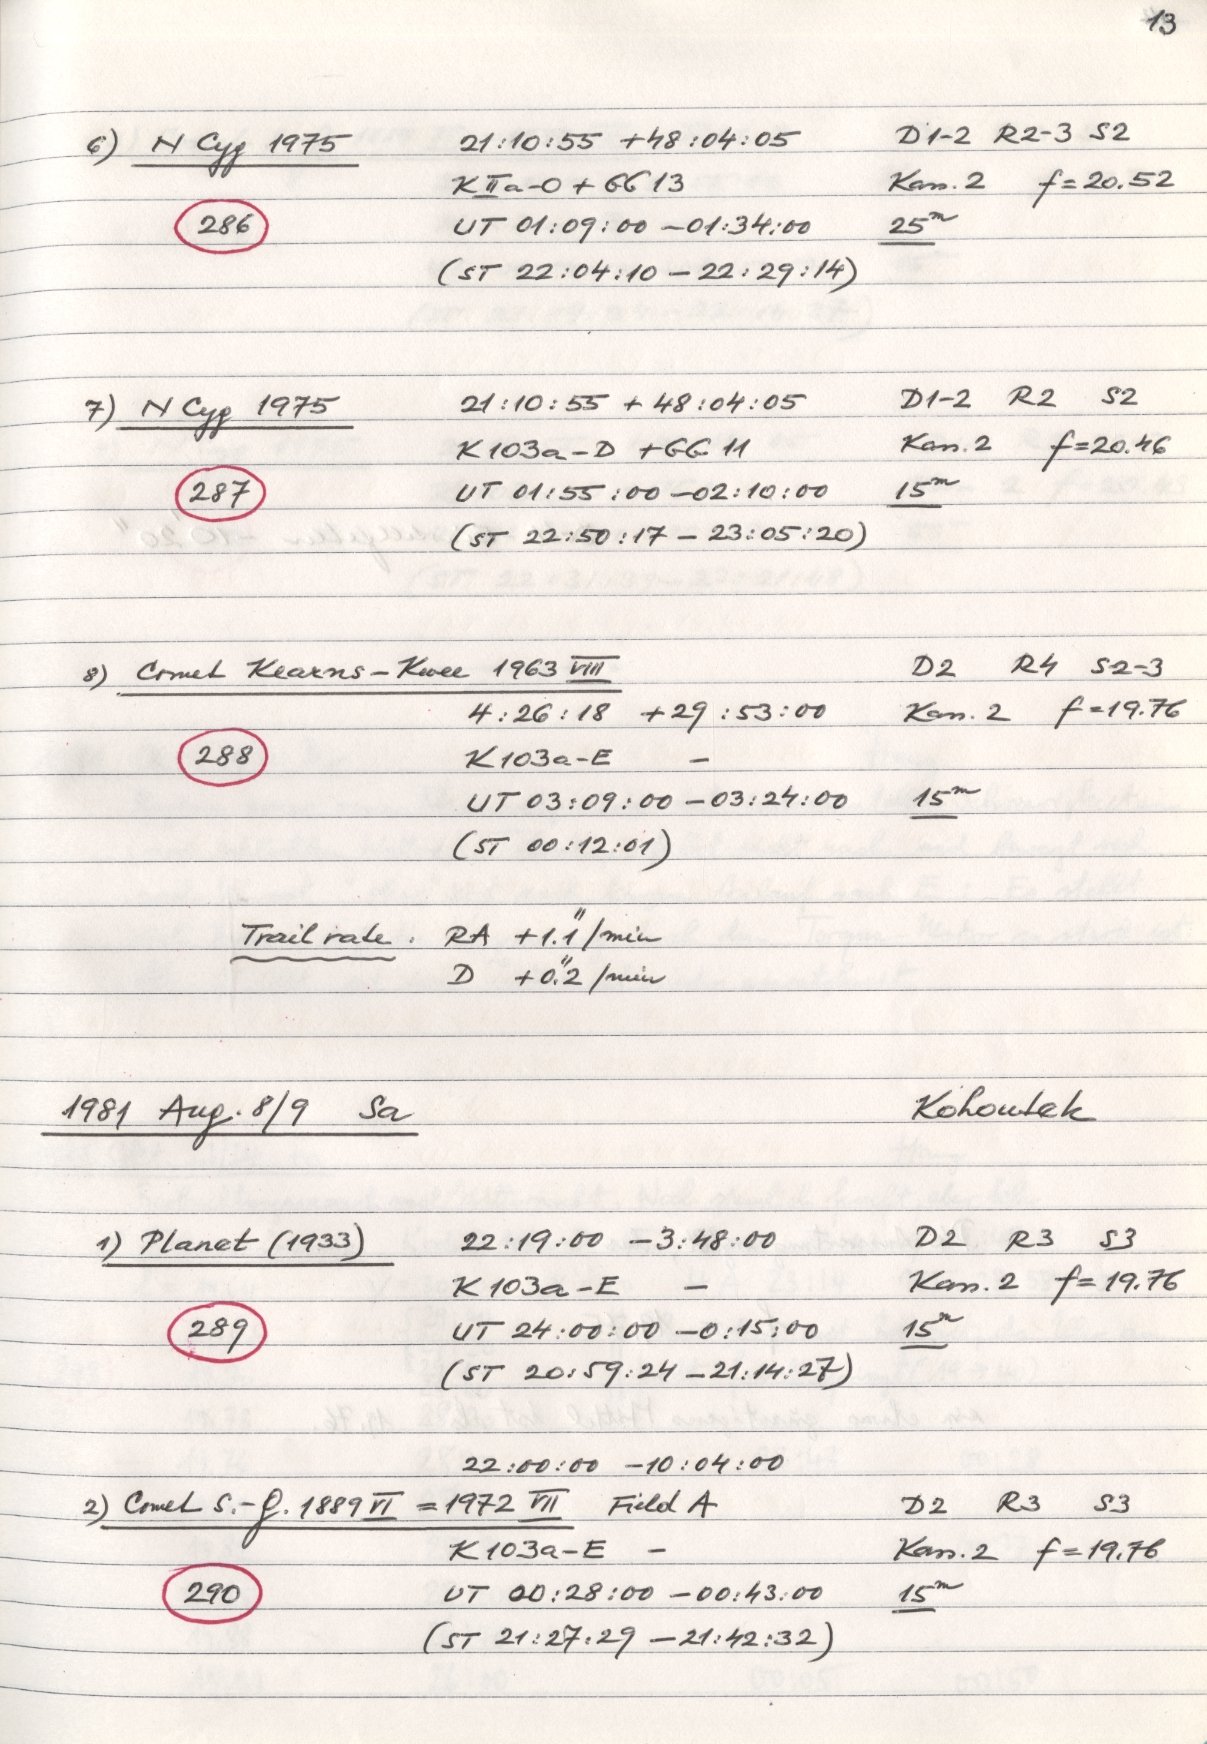 13
6) N Cyg 1975 21:10:55 +48:04:05 D1-2 R2-3 S2
KIIa-O + GG 13 Kas. 2 f=20.52
286 UT 01:09:00 -01:34:00 25m
(ST 22:04:10 - 22:29:14)
7) N Cyg 1975 21:10:55 +48:04:05 D1-2 R2 S2
K 103a-D + GG 11 Kas. 2 f=20.46
287 UT 01:55:00 -02:10:00 15m
(ST 22:50:17 - 23:05:20)
8) Comet Kearns-Kwee 1963 VIII D2 R4 S2-3
4:26:18 +29:53:00 Kas. 2 f=19.76
288 K 103a-E -
UT 03:09:00 -03:24:00 15m
(ST 00:12:01)
Trail rate. RA +1.1"/min
D +0."2 /min
1981 Aug. 8/9 Sa Kohoutek
1) Planet (1933) 22:19:00 -3:48:00 D2 R3 S3
K 103a-E - Kas. 2 f=19.76
289 UT 24:00:00 -0:15:00 15m
(ST 20:59:24 -21:14:27)
22:00:00 -10:04:00
2) Comet S.-G. 1889 VI = 1972 VII Field A D2 R3 S3
K 103a-E - Kas. 2 f=19.76
290 UT 00:28:00 -00:43:00 15m
(ST 21:27:29 -21:42:32)